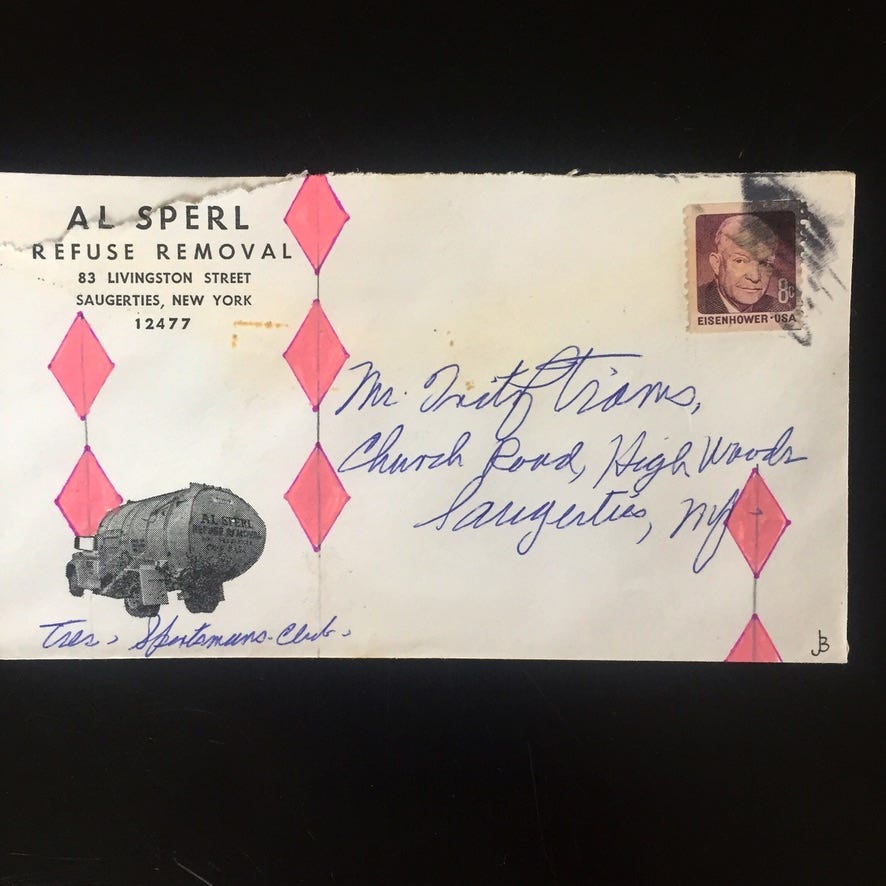 AL SPERL
REFUSE REMOVAL
83 LIVINGSTON STREET
SAUGERTIES, NEW YORK
12477
8c
EISENHOWER·USA
Mr.
Church Road, High Woods
Saugerties, NY
AL SPERL
REFUSE REMOVAL
Tres. Sportsmans Club.
JB